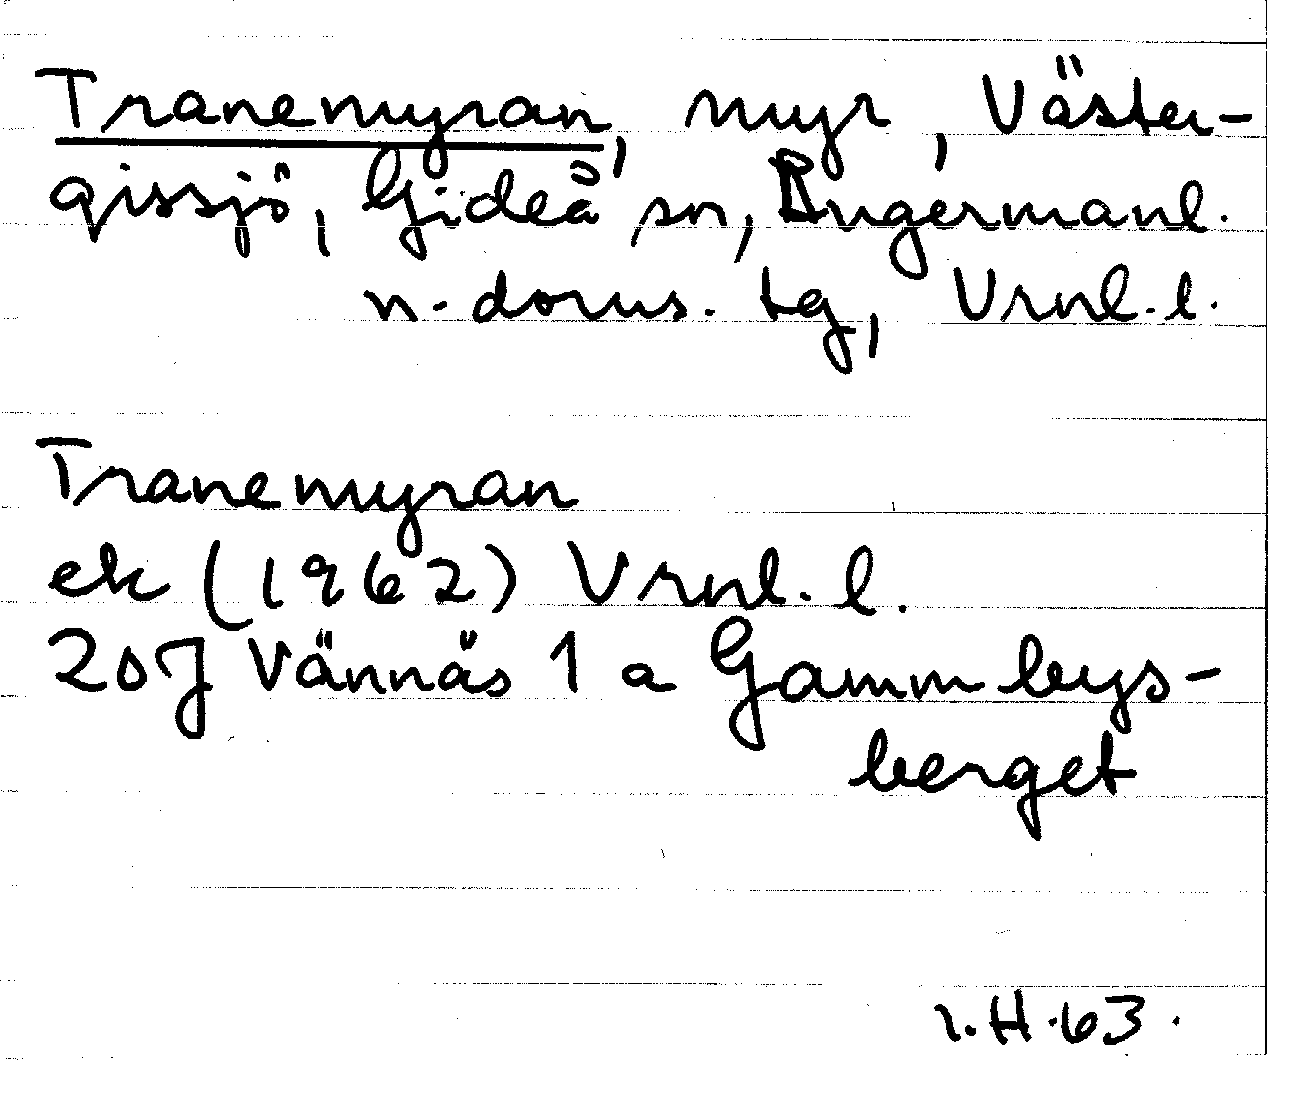 Tranemyran, myr, Väster-
gissjö, Gideå sn, Ångermanl.
n. doms. tg, Vrnl. l.
Tranemyran
ek (1962) Vrnl. l.
20J Vännäs 1 a Gammbys-
berget
I.H.63.